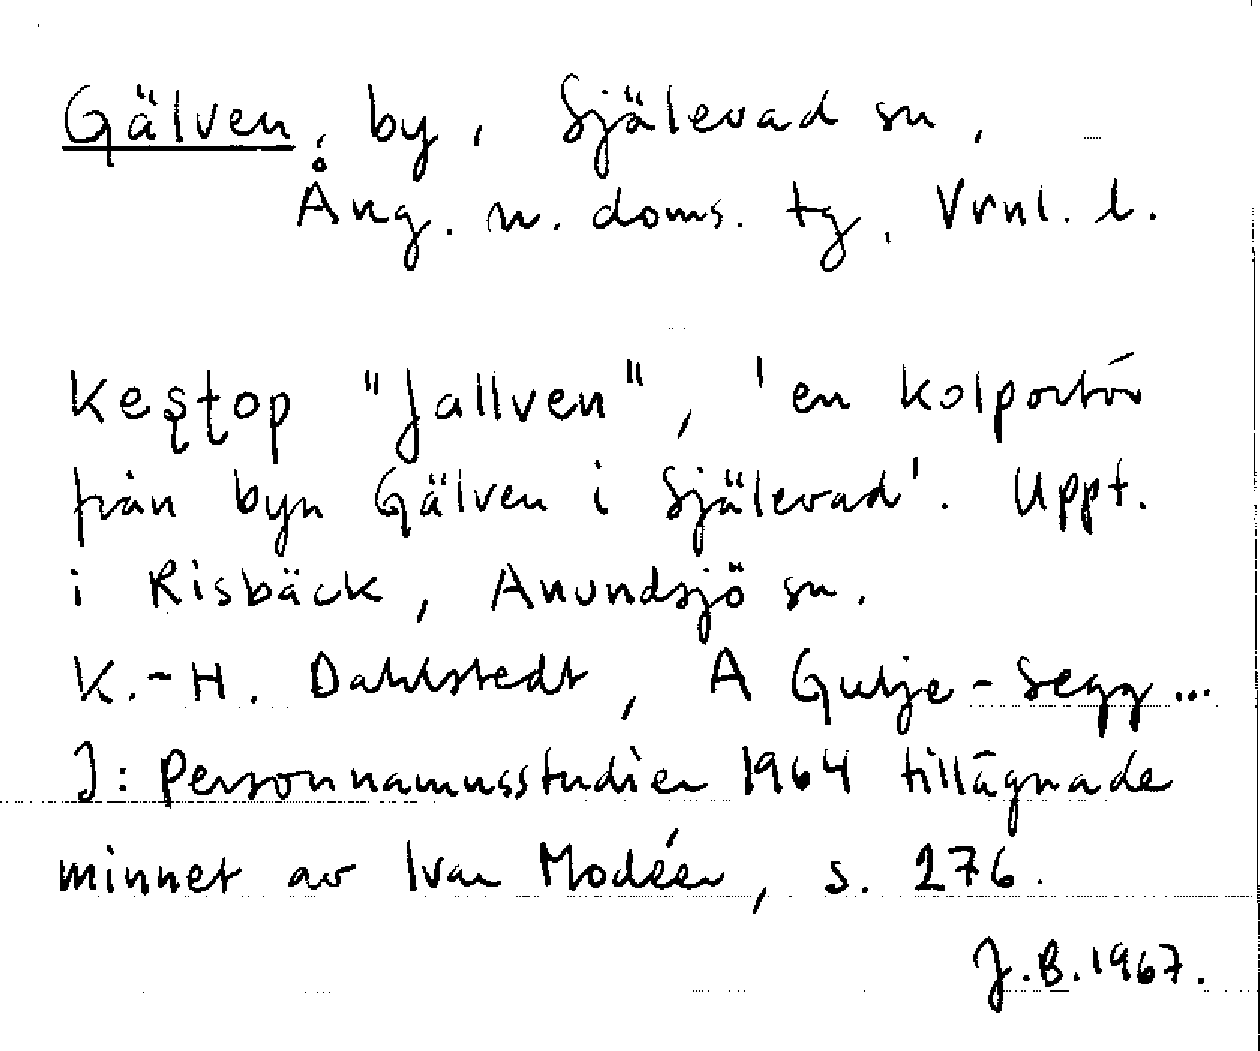 Gälven, by, Själevad sn,
Ång. n. doms. tg, Vrnl. l.
Keştop "Jallven", 'en kolportör
från byn Gälven i Själevad'. Uppt.
i Risbäck, Anundsjö sn.
K.-H. Dahlstedt, A Gutje-Segg...
I: Personnamnsstudier 1964 tillägnade
minnet av Ivar Modéer, s. 276.
J.B.1967.